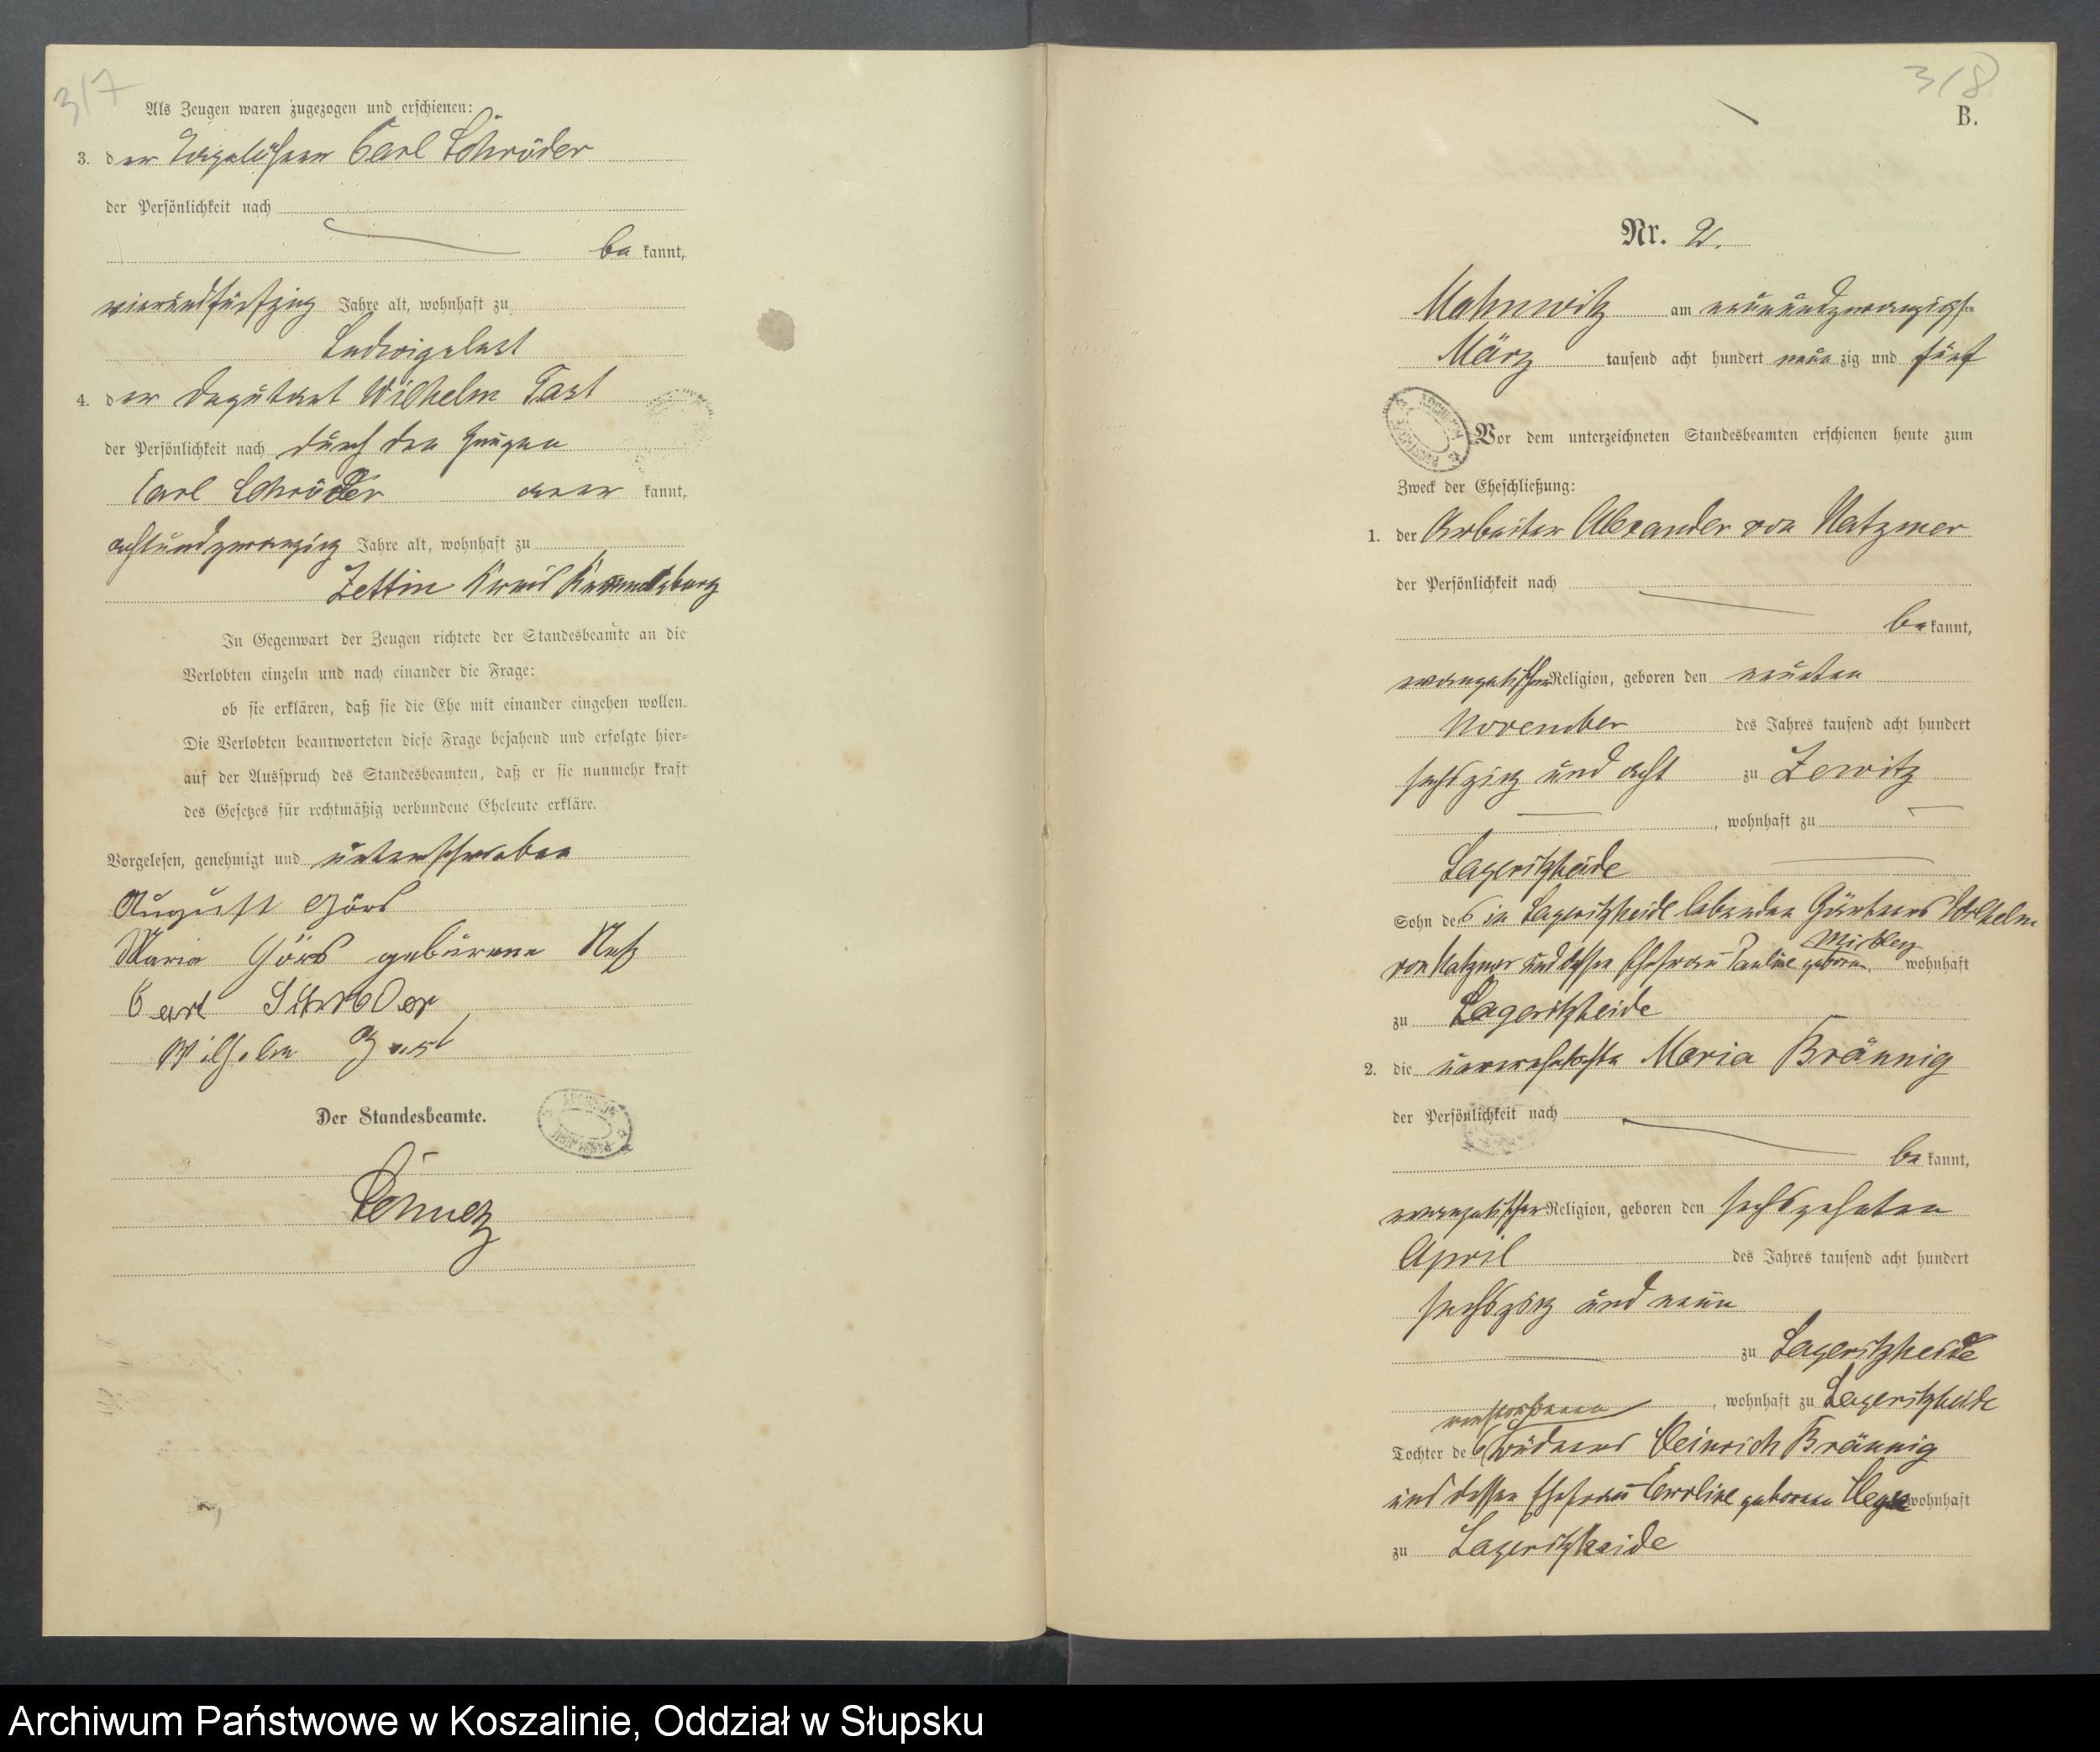 317
Als Zeugen waren zugezogen und erschienen:
3. der Tagelöhner Carl Schröder
der Persönlichkeit nach
bekannt,
vierundfünfzig Jahre alt, wohnhaft zu
Ludwigslust
4. der Deputant Wilhelm Tast
der Persönlichkeit nach durch den Zeugen
Carl Schröder anerkannt,
achtundzwanzig Jahre alt, wohnhaft zu
Zettin Kreis Rummelsburg
In Gegenwart der Zeugen richtete der Standesbeamte an die
Verlobten einzeln und nach einander die Frage:
ob sie erklären, daß sie die Ehe mit einander eingehen wollen.
Die Verlobten beantworteten diese Frage bejahend und erfolgte hier-
auf der Ausspruch des Standesbeamten, daß er sie nunmehr kraft
des Gesetzes für rechtmäßig verbundene Eheleute erkläre.
Vorgelesen, genehmigt und unterschrieben
August Görs
Maria Görs geborene
Carl Schröder
Wilhelm
Der Standesbeamte.
318
B.
Nr. 2.
Mahnwitz am neunundzwanzigsten
März tausend acht hundert neunzig und fünf
Vor dem unterzeichneten Standesbeamten erschienen heute zum
Zweck der Eheschließung:
1. der Arbeiter Alexander von Natzmer
der Persönlichkeit nach
bekannt,
evangelischer Religion, geboren den neunten
November des Jahres tausend acht hundert
sechszig und acht zu Zewitz
, wohnhaft zu
Lageritzheide
Sohn des in Lageritzheide lebenden Gärtners Wilhelm
von Natzmer und dessen Ehefrau Pauline geboren. wohnhaft
zu Lageritzheide
2. die unverehelichte Maria Brännig
der Persönlichkeit nach
bekannt,
evangelischer Religion, geboren den sechszehnten
April des Jahres tausend acht hundert
sechszig und neun
zu Lageritzheide
, wohnhaft zu Lageritzheide
verstorbenen
Tochter des Büdners Heinrich Brännig
und dessen Ehefrau Caroline geborenen wohnhaft
zu Lageritzheide
Archiwum Państwowe w Koszalinie, Oddział w Słupsku